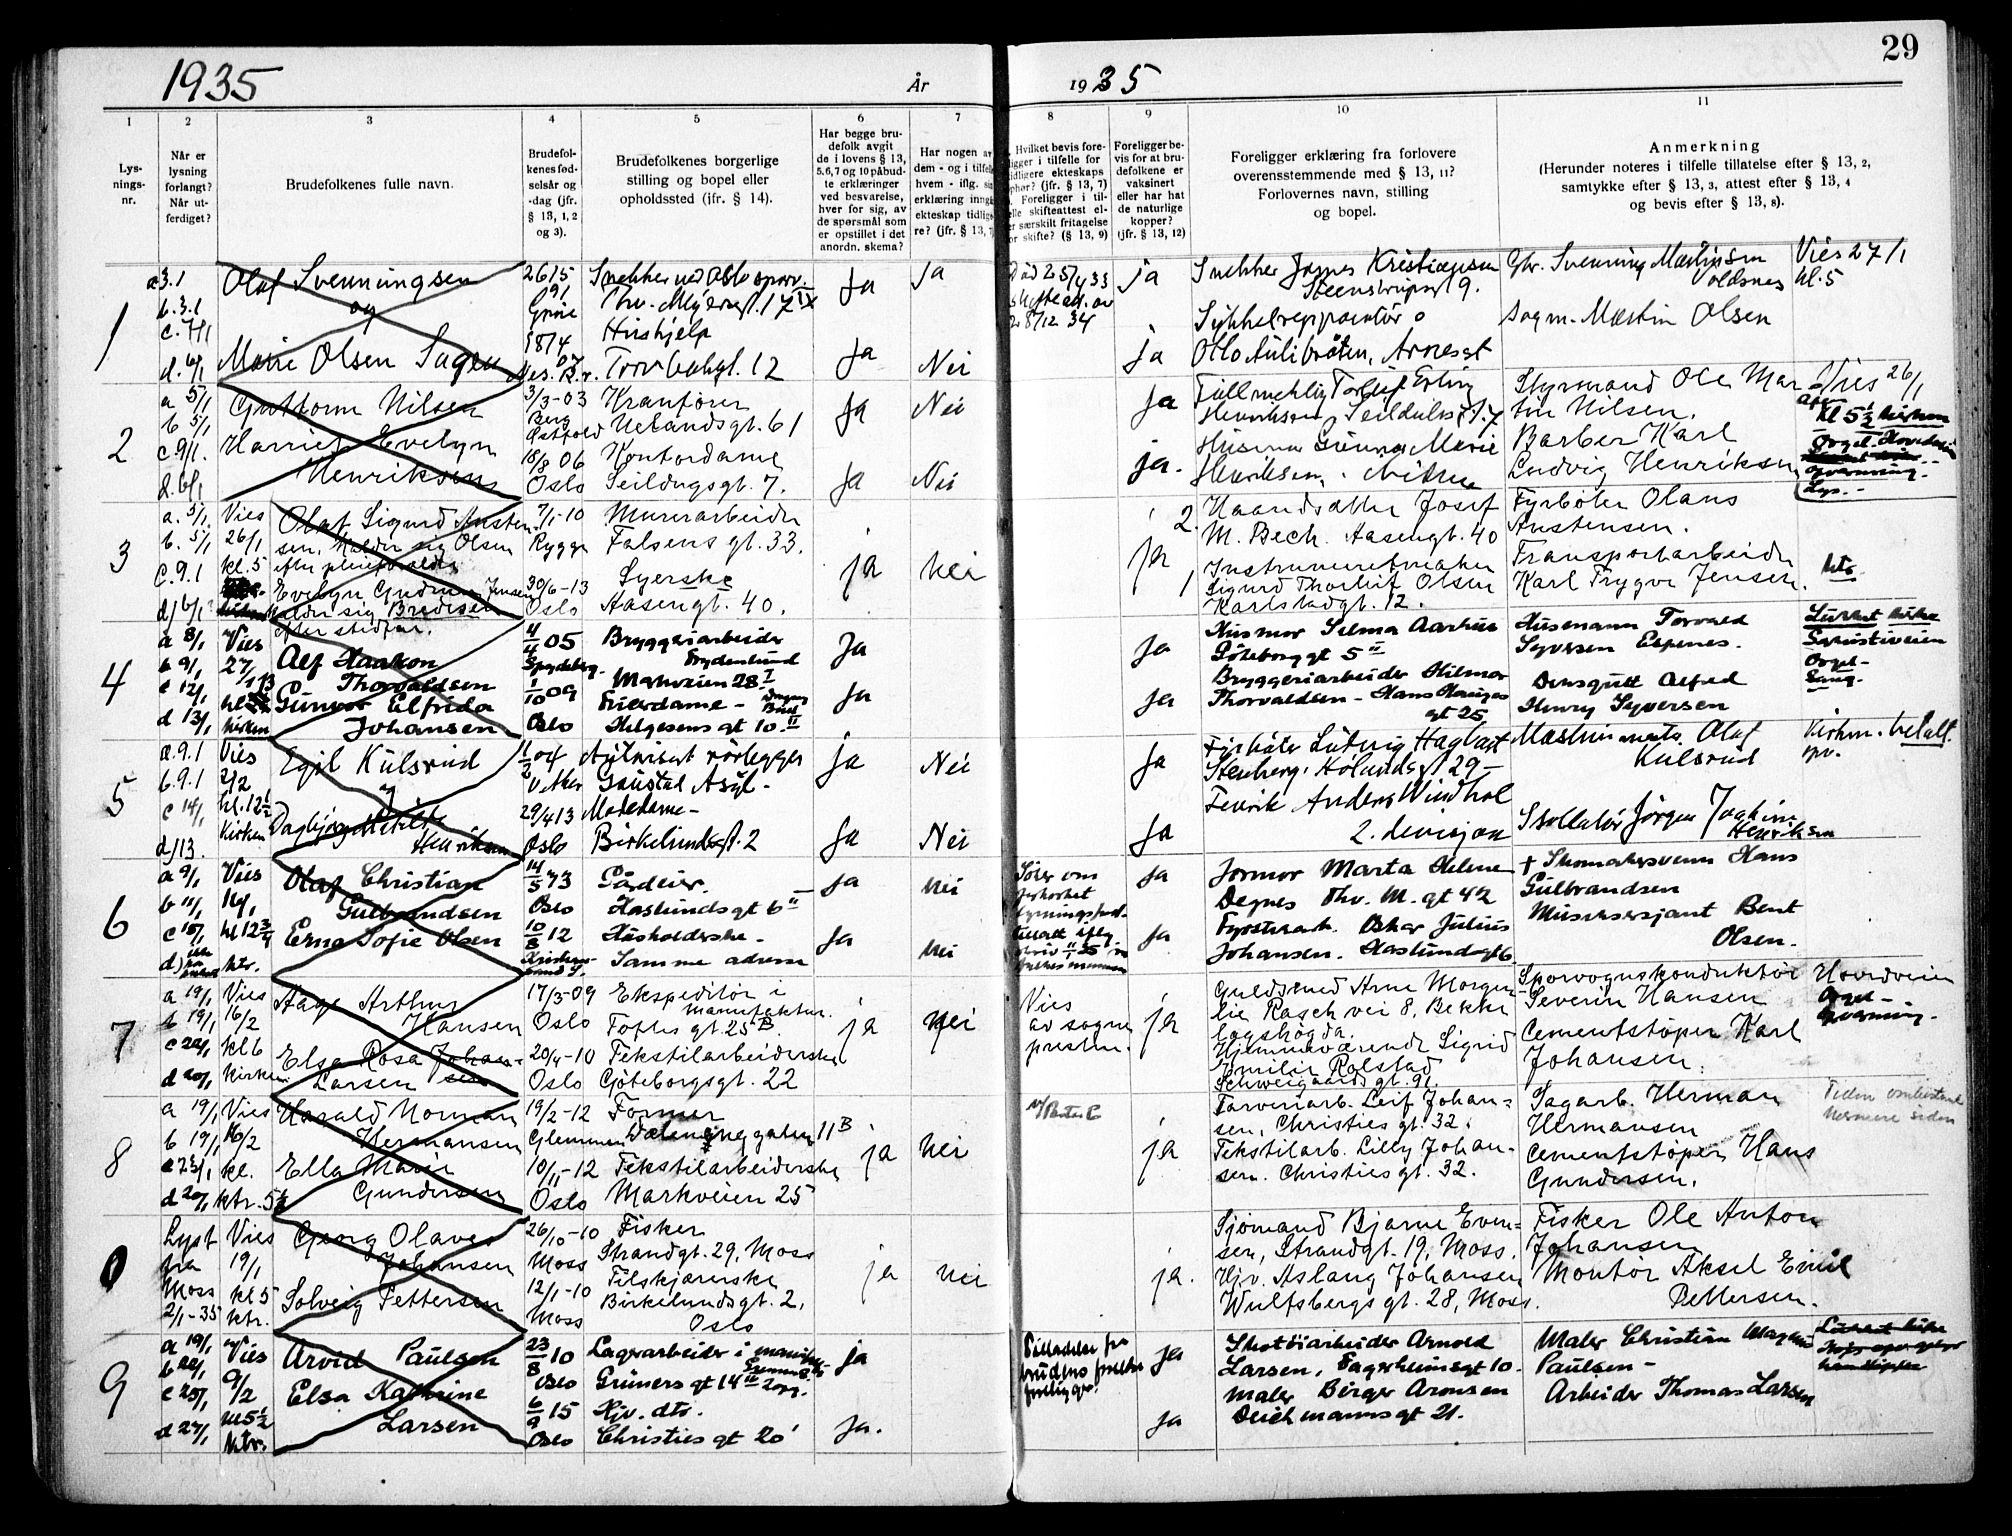 1935
År
1935
29
1
2
3
4
5
6
7
8
9
10
11
Lys-
nings-
nr.
Når er
lysning
forlangt?
Når ut-
ferdiget?
Brudefolkenes fulle navn.
Brudefol-
kenes fød-
selsår og
-dag (jfr.
§ 13, 1, 2
og 3).
Brudefolkenes borgerlige
stilling og bopel eller
opholdssted (jfr. § 14).
Har begge bru-
defolk avgit
de i lovens § 13,
5, 6, 7 og 10 påbud-
te erklæringer
ved besvarelse,
hver for sig, av
de spørsmål som
er opstillet i det
anordn. skema?
Har nogen av
dem - og i tilfelle
hvem - iflg. sin
erklæring inngå
ekteskap tidlige-
re? (jfr. § 13, 7
Hvilket bevis fore-
ligger i tilfelle for
tidligere ekteskaps
ophør? (jfr. § 13, 7)
Foreligger i til-
felle skifteattest el-
er særskilt fritagelse
for skifte? (§ 13, 9)
Foreligger be-
vis for at bru-
defolkene er
vaksinert
eller har hat
de naturlige
kopper?
(jfr. § 13, 12)
Foreligger erklæring fra forlovere
overensstemmende med § 13, 11?
Forlovernes navn, stilling
og bopel.
Anmerkning
(Herunder noteres i tilfelle tillatelse efter § 13, 2,
samtykke efter § 13, 3, attest efter § 13, 4
og bevis efter § 13, 8).
1
a 3.1
b. 3.1
Olaf Svenningsen
og
Marie Olsen Sagen
26/5
91
18/4
07
Snekker ved Oslo sporv.
Thv. Meyersgt. 17 IV
Hushjelp
Torvbakkgt. 12
Ja
Ja
Ja
Nei
Død 25/4 33
28/12 34
ja
ja
Snekker Jognes Kristiansen
Steenstrupsgt 9.
Sykkelreparatør
Otto Aulibråten, Arnesgt
Gbr. Svenning Martinsen
Voldsnes
Sagm. Martin Olsen
Vies 27/1
kl. 5
2
a 5/1
b 5/1
c. 9/1.
d. 6/1
Guttorm Nilsen
Harriet Evelyn
Henriksen
3/3-03
Berg
Østfold
18/8 06
Oslo
Kranfører
Uelandsgt. 61
Kontordame
Seildugsgt. 7.
Ja
Nei
Ja
Nei
Ja
ja.
Fullmektig Torleif Erling
Henriksen, Seilduksgt. 7
Husmor Gunna Marie
Henriksen,
Styrmand Ole Mar-
tin Nilsen.
Barber Karl
Ludvig Henriksen
Vies 26/1
kl 5½ kirken
Orgel.
opvarming.
Lys.
3
a. 5/1
b. 5/1
c. 9.1
d) 6/1
Vies
26/1
kl. 5
Olaf Sigurd Austen-
sen, kalder sig Olsen
efter pleieforeldre
Evelyn Gudrun Jensen
kalder sig Bredesen
efter stedfar.
7/1-10
Rygge
30/6-13
Oslo
Murerarbeider
Falsens gt. 33.
Syerske
Aasengt. 40.
ja
nei
ja
2.
Haandsetter Josef
M. Bech. Aasengt. 40
1
Instrumentmaker
Sigurd Thorleif Olsen
Karlstadgt. 12.
Fyrbøter Olaus
Austensen.
Transportarbeider
Karl Trygve Jensen.
4
a 8/1
b 9/1
c 12/1
d 13/1
Vies
27/1
kirken
Alf Haakon
Thorvaldsen
Gunvor Elfrida
Johansen
4/4 05
Spydeberg.
1/10 09
Oslo
Bryggeriarbeider
Frydenlund
Markveien 28 I
Helgesens gt 10. II
Ja
Ja
Ja
Ja
Husmor Selma Aarhus
Göteborggt 5 II
Bryggeriarbeider Hilmar
Thorvaldsen - Hans Hauges
gt 25.
Husmann Torvald
Syversen Espenes.
Alfred
Henry Syversen
Lukket kirke
Orgel -
Sang -
5
a. 9.1
b. 9.1
c 14/1
d) 13.
Vies
2/2
kl. 12½
Kirken
Egil Kulsrud
og
Dagbjørg Matilde
Henriksen
1/2 04
29/4 13
Oslo
rørlegger
Gaustad Asyl -
Motedame -
Birkelundsgt. 2
ja
Nei
Ja
Nei
Ja
Ja
Fyrbøter Ludvig Hagbart
Stenberg. Hølandsgt 29 -
Fenrik Anders Windhol
2. divisjon
Maskinmstr. Olaf
Kulsrud
Jørgen Joakim
Henriksen
Kirken. betalt.
opv.
6
a 9/1
b 11/1
c 15/1
Vies
kl 12¾
ktr.
Olaf Christian
Gulbrandsen
Erna Sofie Olsen
14/5 73
Oslo
10/8 12
Kristian-
sand S.
Gårdeier.
Haslundsgt 6 II
Husholderske -
Samme adresse
ja
nei
Ja
nei
Søker om
forkortet
ja
ja
Jormor Marta Helene
Degnes Thv. M. gt 42
Oskar Julius
Johansen. Haslundsgt 6.
+ Skomakersvenn Hans
Gulbrandsen
Musikksersjant Bent
Olsen.
7
a 19/1
b 19/1
c 22/1
d 20/1
Vies
16/2
kl 6
kirken
Aage Arthur
Hansen
Elsa Rosa Johan-
sen
Larsen
17/3-09
Oslo
20/4-10
Oslo
Ekspeditør i
manufaktur.
Toftes gt 25 B.
Tekstilarbeiderske
Göteborgsgt. 22
ja
nei
Vies
av sogne
presten.
ja
Guldsmed Arne Morgen-
lie Rasch vei 8, Bekke
lagshøgda.
Hjemmeværende Sigrid
Emilie Rolstad
Schweigaards gt. 91.
Sporvognskonduktør
Severin Hansen
Cementstøper Karl
Johansen.
Hovedveien
Orgel -
opvarming -
8
a 19/1
b 19/1
c 23/1
d 20/1
Vies
16/2
kl.
ktr. 5½
Harald Norman
Hermansen
Ella Marie
Gundersen
19/2-12
Glemmen
10/11-12
Oslo
Former
11 B
Tekstilarbeiderske
Markveien 25
ja
nei
ja
Farveriarb. Leif Johan-
sen, Christies gt. 32.
Tekstilarb. Lilly Johan-
sen. Christies gt. 32.
Sagarb. Herman
Hermansen
Cementstøper Hans
Gundersen.
Tiden ombestemt
nermere siden
0
Lyst
fra
Moss
2/1-35
Vies
19/1
kl 5
ktr.
Georg Olaves
Johansen
Solveig Pettersen
26/10-10
Moss
12/1-10
Moss
Fisker
Strandgt. 29, Moss
Tilskjærerske
Birkelundsgt. 2,
Oslo
ja
nei
ja.
Sjømand Bjarne Even-
sen, Strandgt. 19, Moss.
Hjv. Aslaug Johansen
Wulfsbergs gt. 28, Moss.
Fisker Ole Anton
Johansen
Montør Aksel Emil
Pettersen.
9
a 19/1
b 22/1
c 25/1
d 27/1
Vies
9/2
kl 5½
ktr.
Arvid Paulsen
Elsa Kathrine
Larsen
23/8 10
Oslo
6/9 15
Oslo
Lagerarbeider i
Grüners gt 14
Hjv. dtr.
Christies gt 20
ja
Ja.
Tilladelse fra
brudens foreldre
foreligger.
ja
ja
Skotøiarbeider Arnold
Larsen, Fagerheimsgt 10 -
Maler Birger Aronsen
Deichmannsgt 21.
Maler Christian Magnus
Paulsen -
Arbeider Thomas Larsen